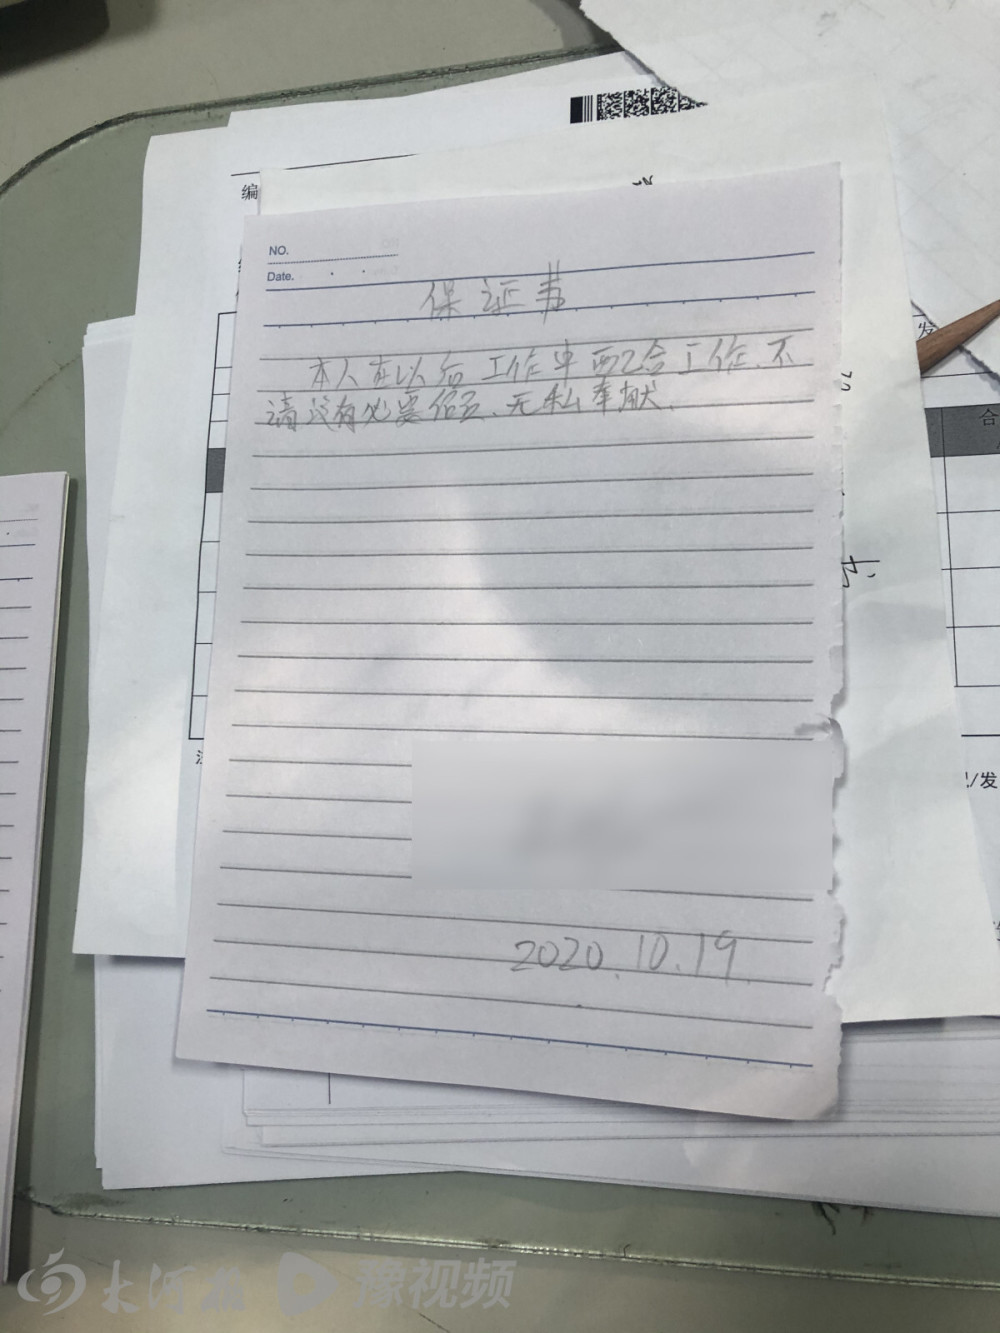 编
NO.
Date.
保证书
本人在以后工作中配合工作、不
请没有必要假、无私奉献.
2020.10.19
发
合
/发
大河报 豫视频